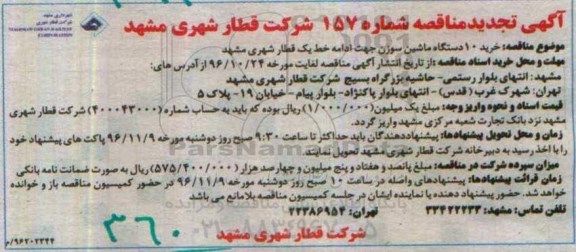 آگهی تجدیدمناقصه شماره ۱۵۷ شرکت قطار شهری مشهد
موضوع مناقصه: خرید ۱۰ دستگاه ماشین سوزن جهت ادامه خط یک قطار شهری مشهد
مهلت و محل خرید اسناد مناقصه: از تاریخ انتشار آگهی مناقصه لغایت مورخه ۹۶/۱۰/۲۴ از آدرس های:
مشهد: انتهای بلوار رستمی- حاشیه بزرگراه بسیج شرکت قطار شهری مشهد
تهران: شهرک غرب (قدس) - انتهای بلوار پاکنژاد- بلوار پیام -خیابان ۱۹- پلاک ۵
قیمت اسناد و نحوه واریز وجه: مبلغ یک میلیون (۱/۰۰۰/۰۰۰) ریال بوده که باید به حساب شماره (۴۰۰۰۴۳۰۰۰) شرکت قطار شهری
مشهد نزد بانک تجارت شعبه مرکزی مشهد واریز گردد.
زمان و محل تحویل پیشنهادها: پیشنهاددهندگان باید حداکثر تا ساعت ۹:۳۰ صبح روز دوشنبه مورخه ۹۶/۱۱/۹ پاکت های پیشنهاد خود
را با اخذ رسید به دبیرخانه شرکت قطار شهری مشهد تحویل نمایند.
میزان سپرده شرکت در مناقصه: مبلغ پانصد و هفتاد و پنج میلیون و چهارصد هزار (۵۷۵/۴۰۰/۰۰۰) ریال به صورت ضمانت نامه بانکی
زمان قرائت پیشنهادها: پیشنهادهای واصله در ساعت ۱۰ صبح روز دوشنبه مورخه ۹۶/۱۱/۹ در حضور کمیسیون مناقصه باز و خوانده
خواهد شد. حضور پیشنهاد دهنده یا نماینده ایشان در جلسه کمیسیون مناقصه بلامانع می باشد
تلفن تماس: مشهد: ۳۳۴۲۲۲۳۳ تهران: ۲۲۳۸۶۹۵۴
شرکت قطار شهری مشهد
۳۶۰